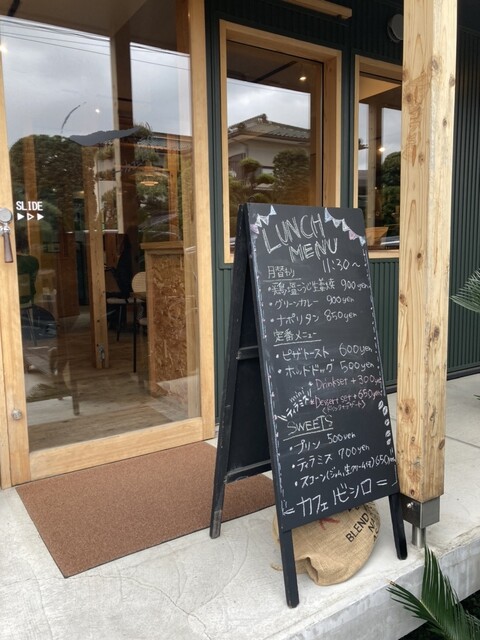 SLIDE
LUNCH
MENU
月替わり 11:30〜
・鶏の塩こうじ生姜焼 900yen
・グリーンカレー 900yen
・ナポリタン 850yen
定番メニュー
・ピザトースト 600yen
・ホットドッグ 500yen
Drinkset + 300yen
mini
ティラミス
Dessert set + 650yen
SWEETS
・プリン 500yen
・ティラミス 700yen
・スコーン(ジャム,生クリーム付き) 650yen
カフェ ビシロ
BLEND